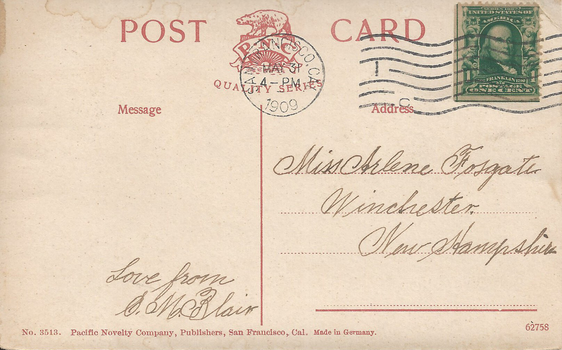 POST CARD
P N C
QUALITY SERIES
SAN FRANCISCO, CAL.
MAY 31
4-PM
1909
UNITED STATES OF AMERICA
FRANKLIN
POSTAGE
ONE CENT
Message
Address
Miss Arlene Fosgate
Winchester
New Hampshire
Love from
S. M. Blair
No. 3513. Pacific Novelty Company, Publishers, San Francisco, Cal. Made in Germany.
62758